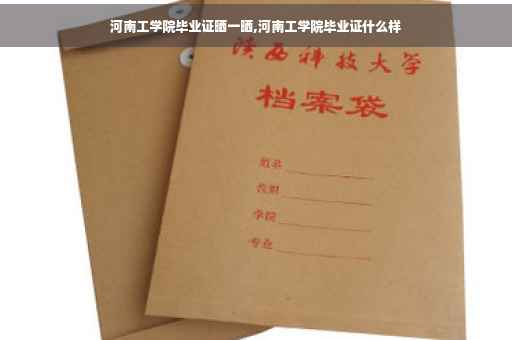 河南工学院毕业证晒一晒,河南工学院毕业证什么样
陕西科技大学
档案袋
姓名
学院
专业